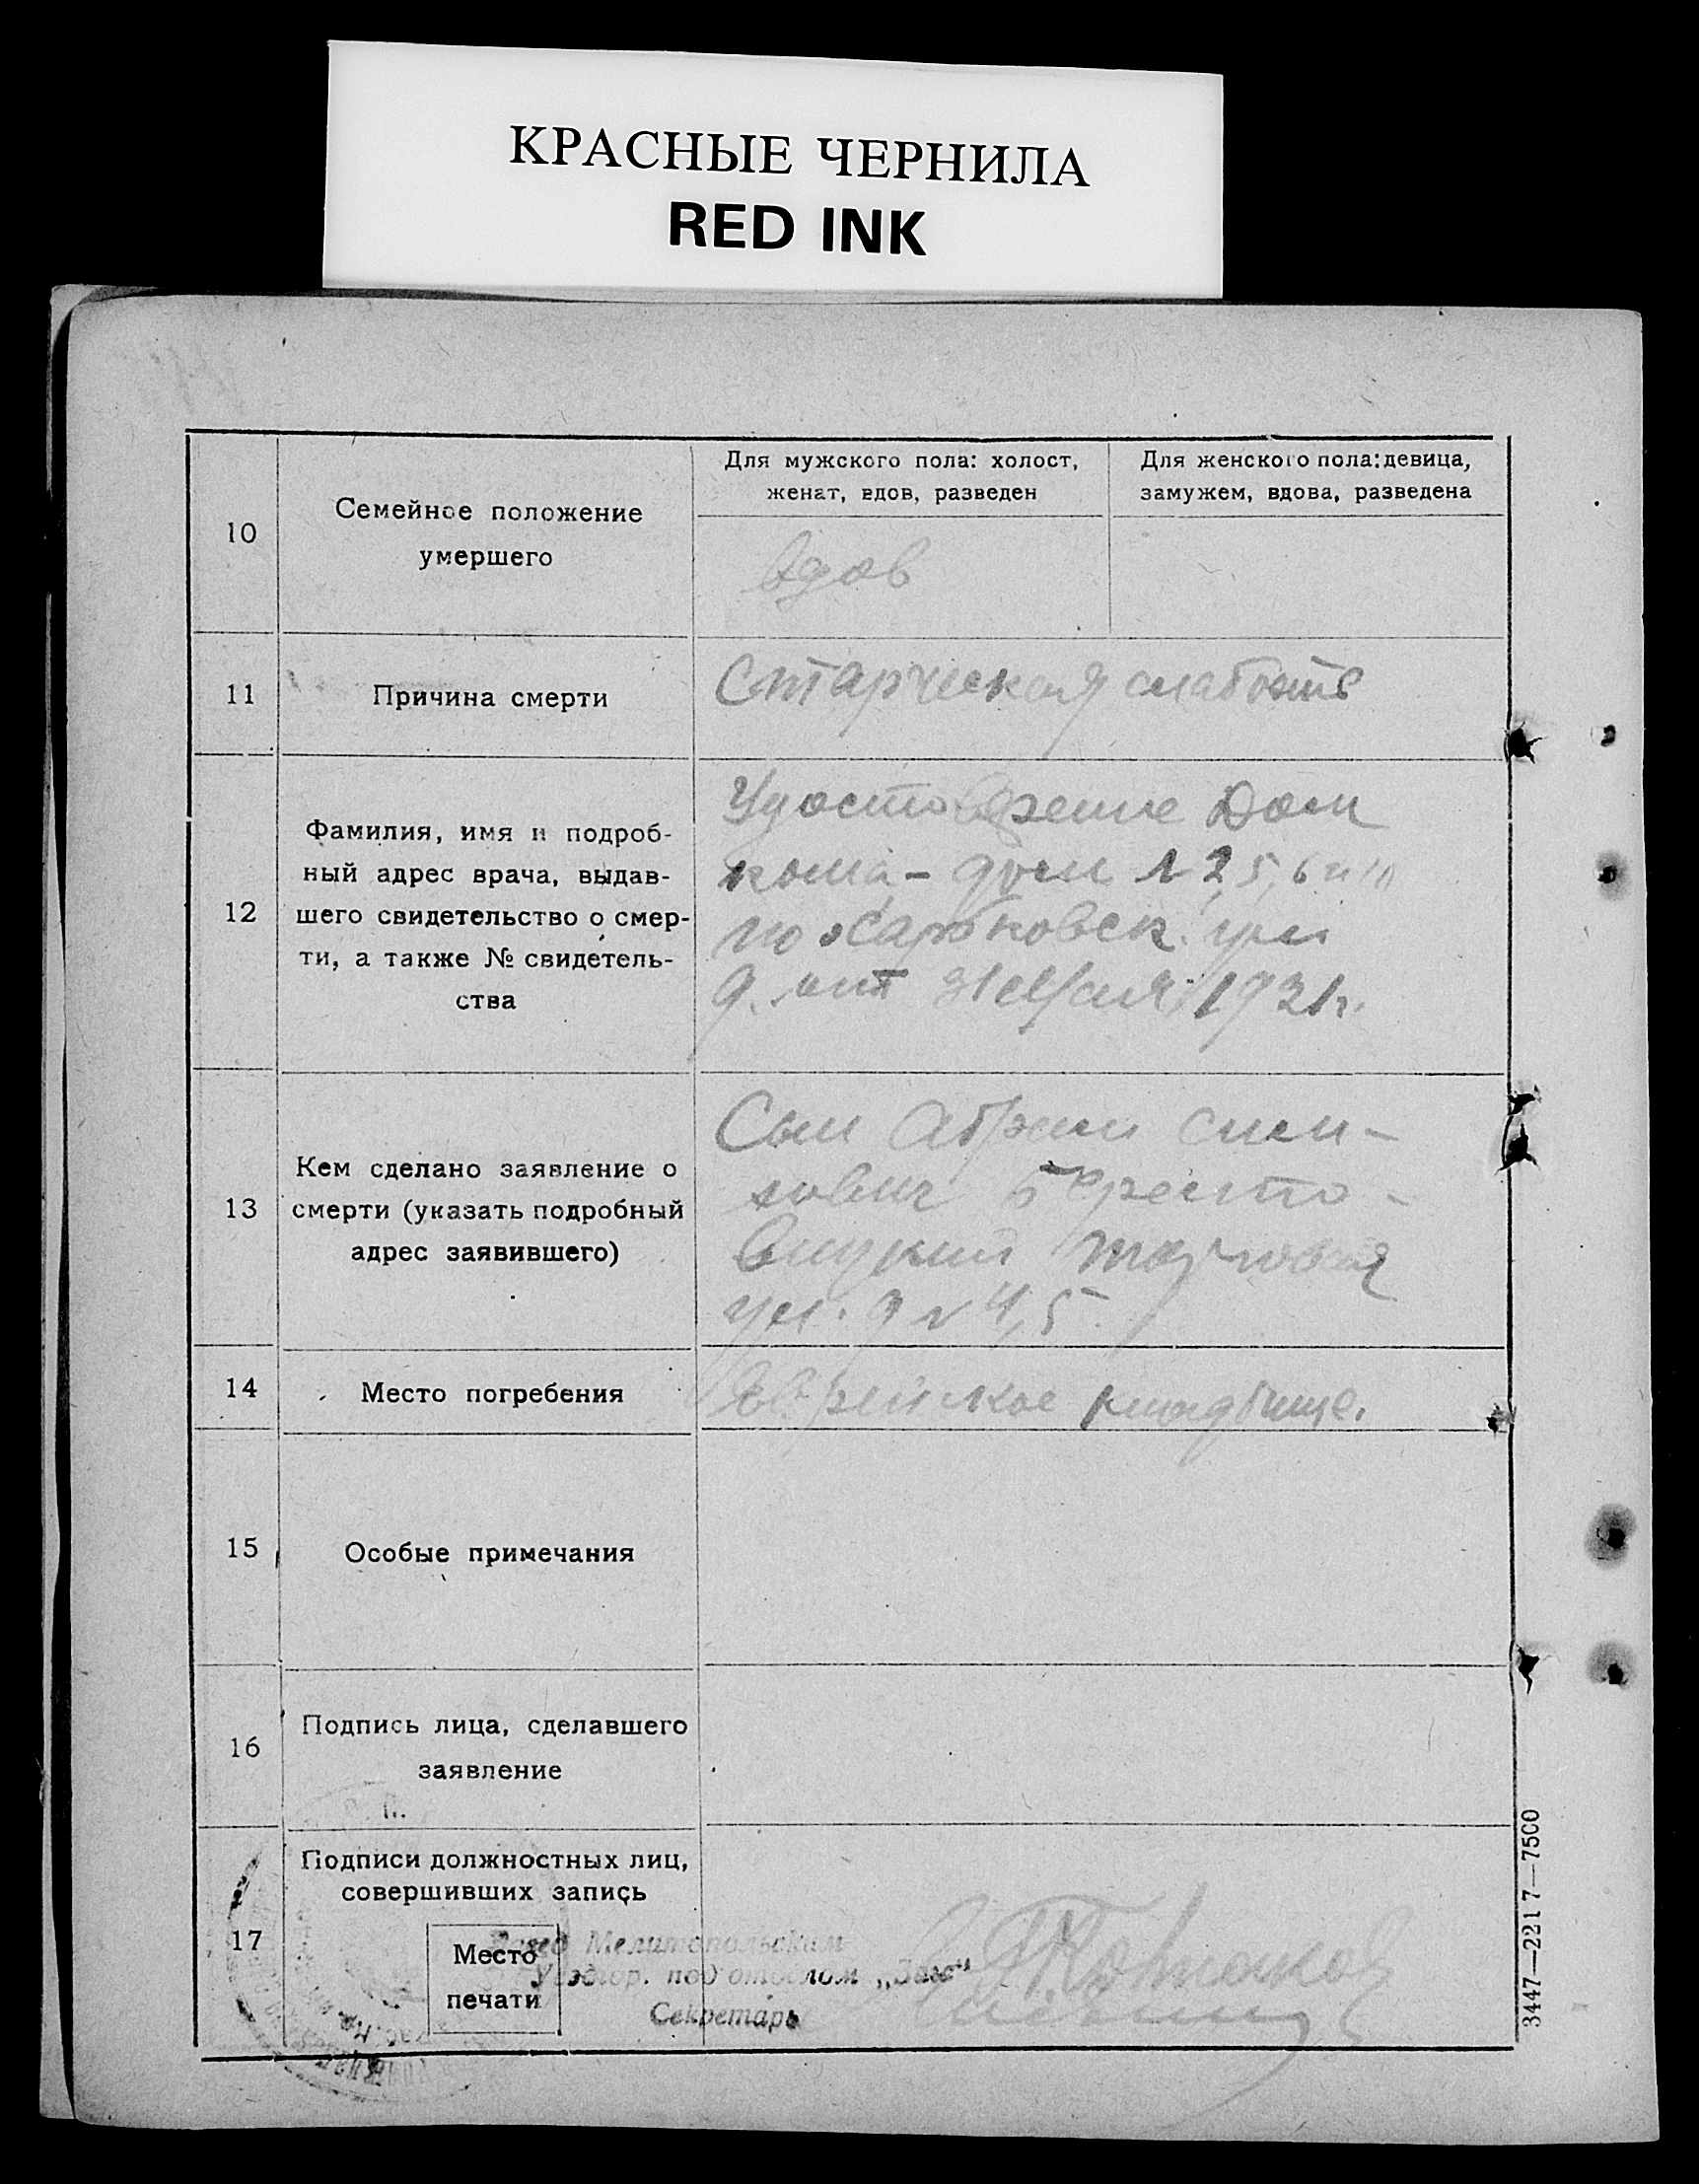 КРАСНЫЕ ЧЕРНИЛА
RED INK
10
Семейное положение
умершего
Для мужского пола: холост,
женат, вдов, разведен
Для женского пола: девица,
замужем, вдова, разведена
вдов
11
Причина смерти
Старческая слабость
12
Фамилия, имя и подроб-
ный адрес врача, выдав-
шего свидетельство о смер-
ти, а также № свидетель-
ства
Удостоверение Дом
кома - дом № 2, 5, 6 и 10
по Харьковск. ул
9. от 31 Мая 1921 г.
13
Кем сделано заявление о
смерти (указать подробный
адрес заявившего)
Сын Абрам Сим-
хович Бересто-
вицкий Торговая
ул. д № 4,5
14
Место погребения
Еврейское кладбище.
15
Особые примечания
16
Подпись лица, сделавшего
заявление
17
Подписи должностных лиц,
совершивших запись
Место
печати
Мелитопольским
Уездгор. подотделом „Загс"
Секретарь
3447—221 7—7500